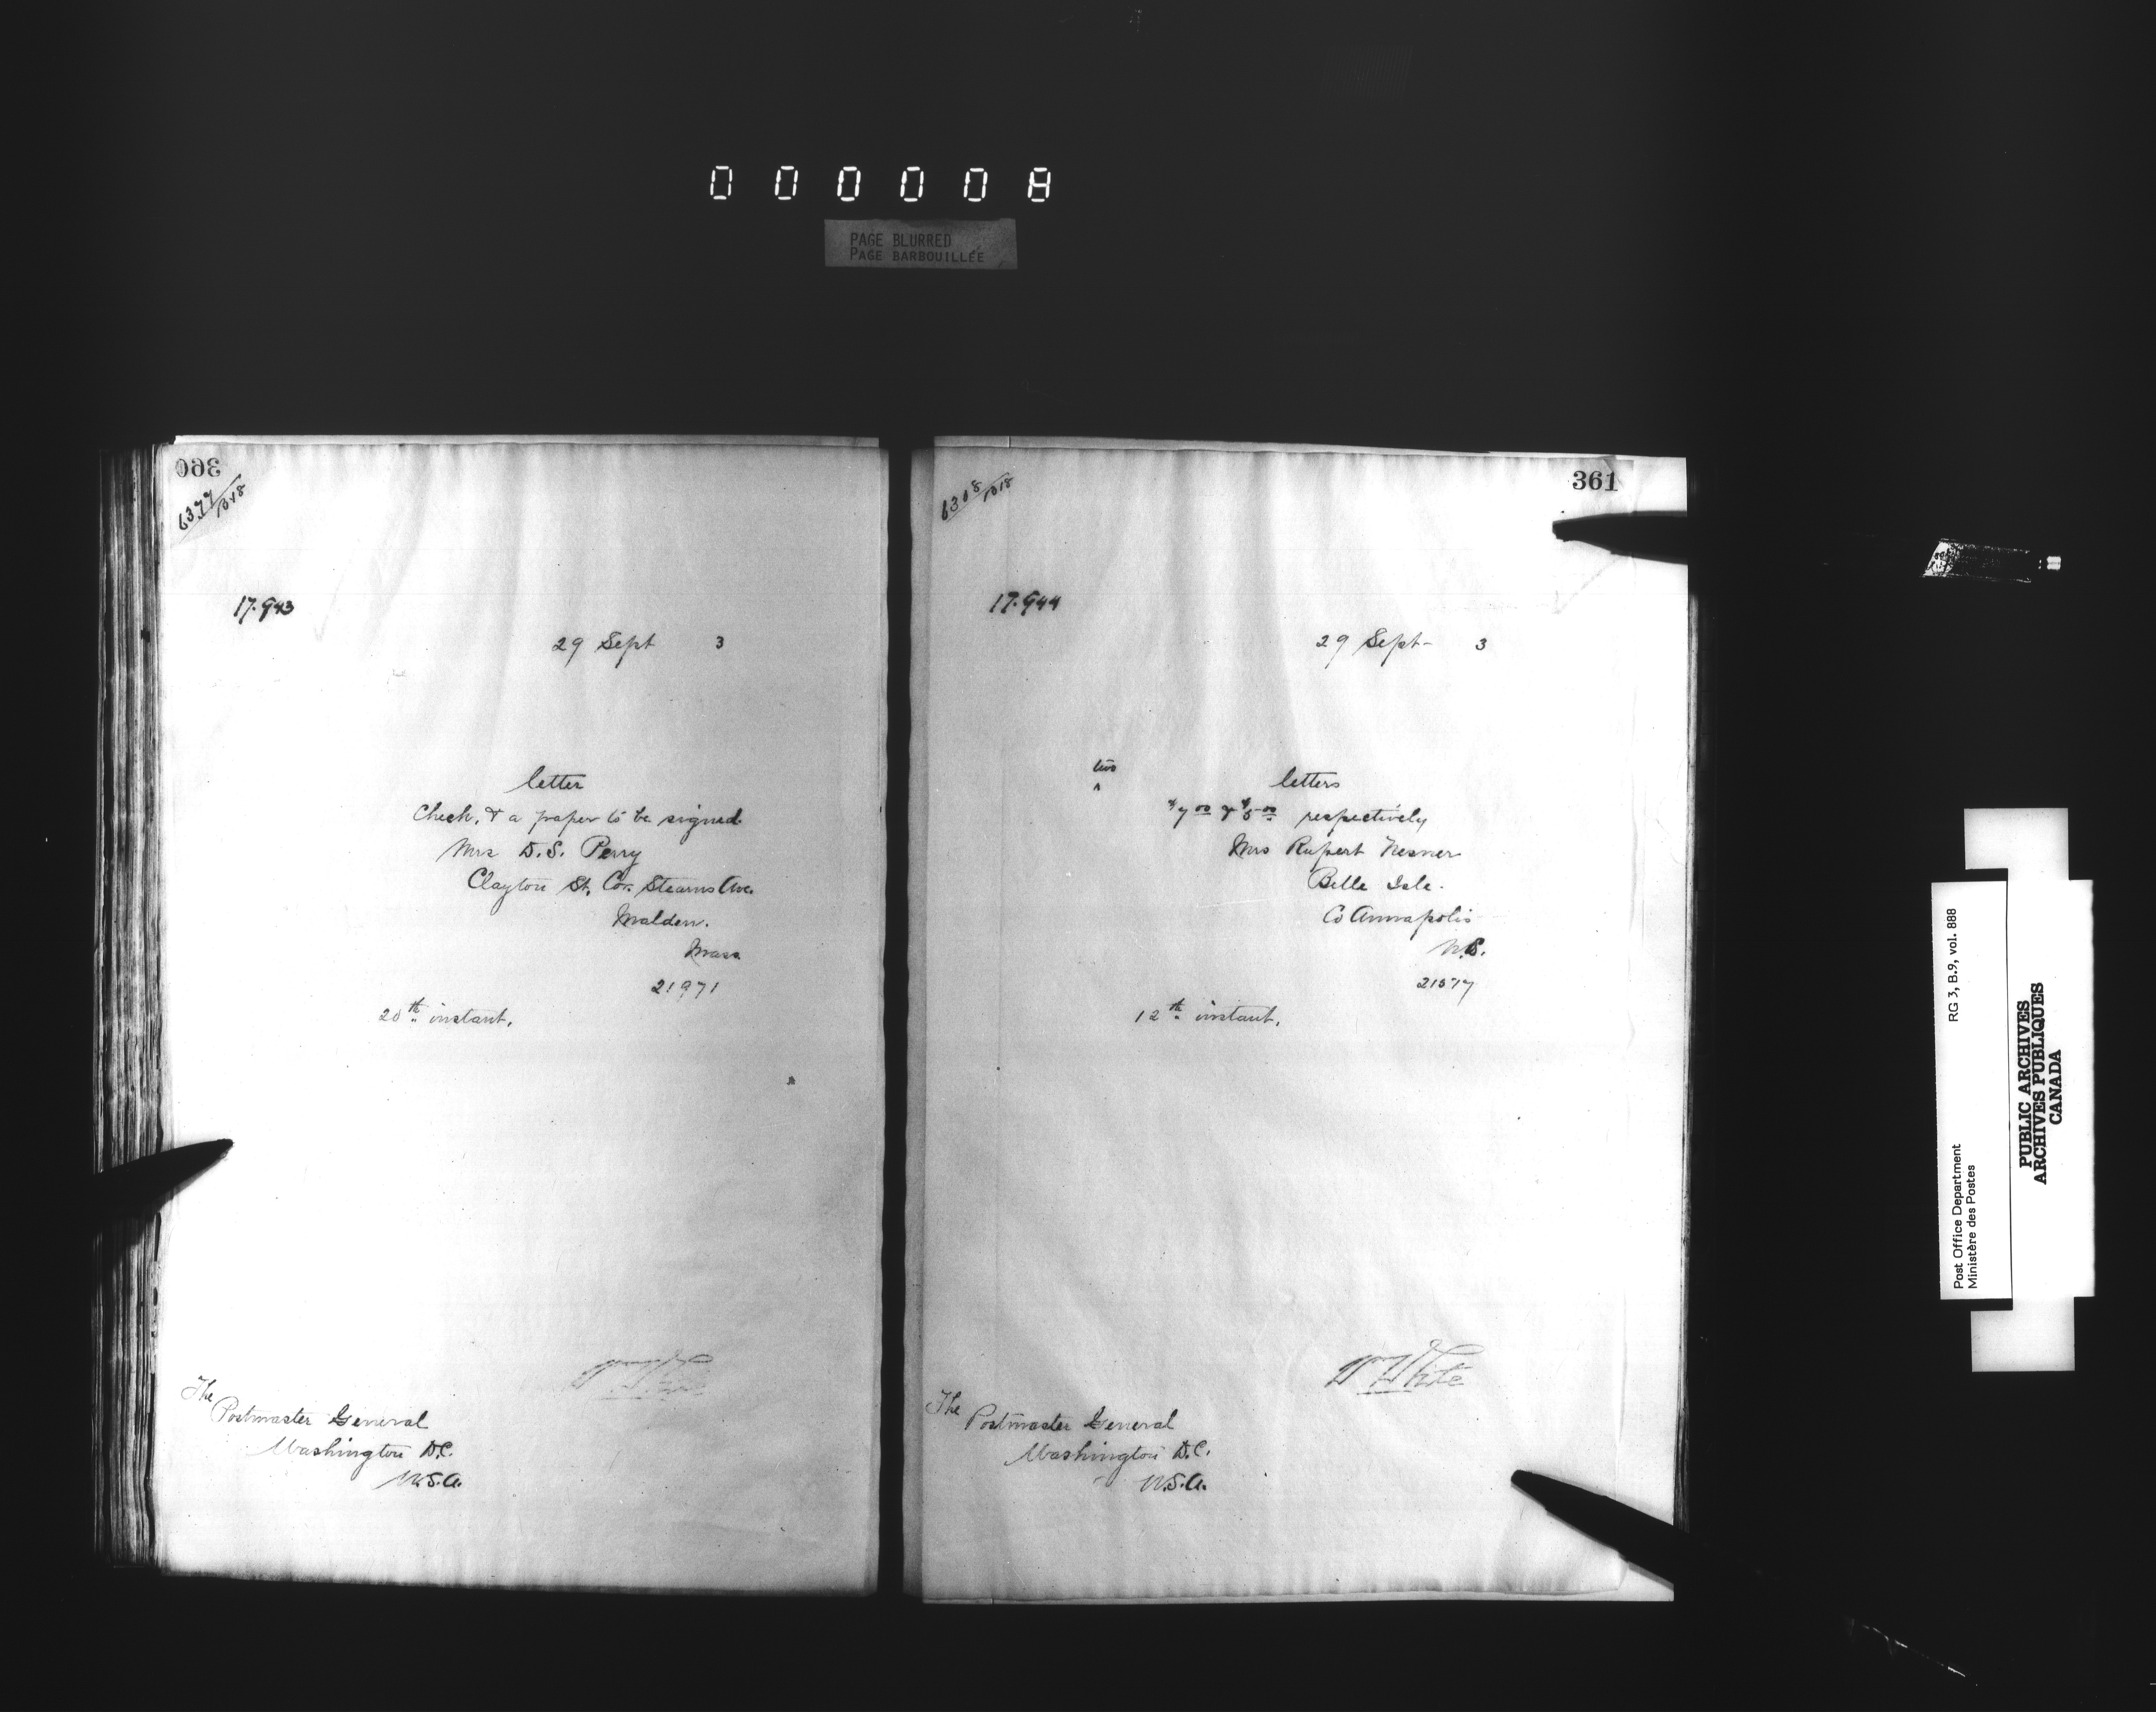 000008
PAGE BLURRED
PAGE BARBOUILLÉE
360
6377/1318
17.943
29 Sept 3
letter
Check, & a paper to be signed
Mrs D.S. Perry
Clayton St. Cor. Stearns Ave.
Malden.
Mass
21971
20th instant.
The
Postmaster General
Washington D.C.
U.S.A.
361
17.944
29 Sept- 3
two
^
letters
$7 00 & $5 00 respectively
Mrs Rupert
Belle Isle.
Co Annapolis
N.S.
12th instant.
W White
The
Postmaster General
Washington D.C.
U.S.A.
Post Office Department RG 3, B.9, vol. 888
Ministère des Postes
PUBLIC ARCHIVES
ARCHIVES PUBLIQUES
CANADA